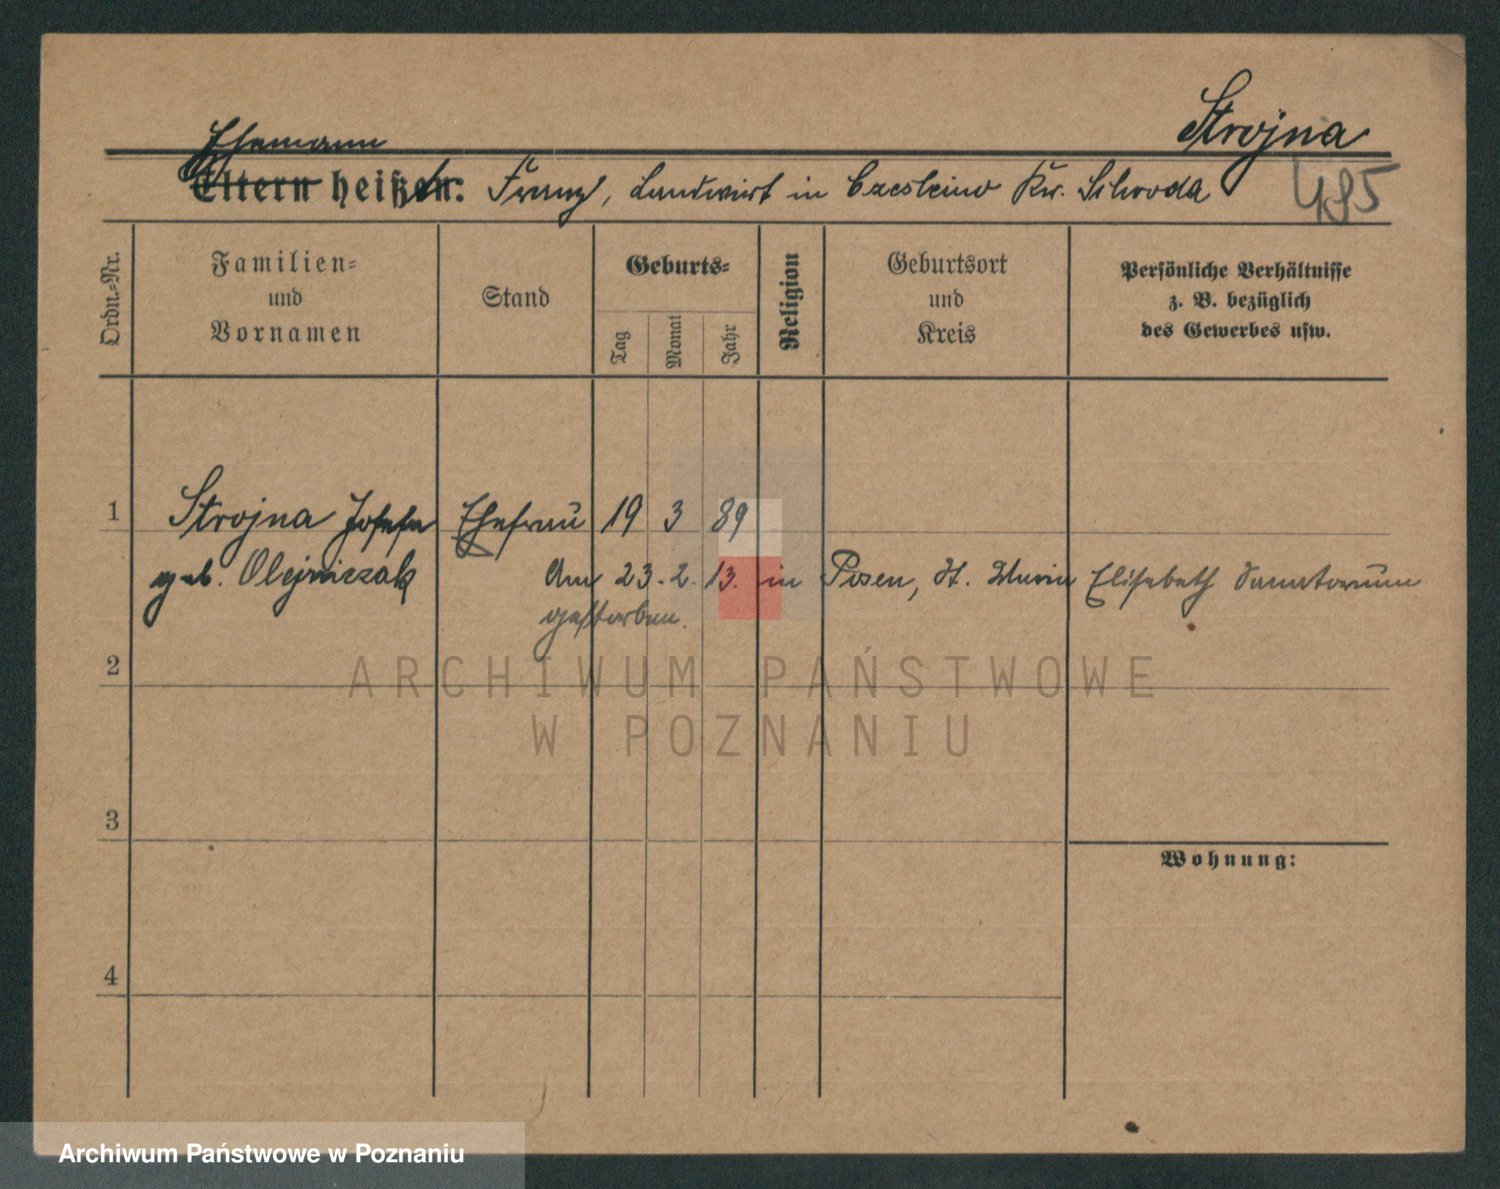 Strojna
Ehemann
Eltern heißen: Franz, Landwirt in Czesleino Kr. Schroda
485
Ordn.-Nr.
Familien-
und
Vornamen
Stand
Geburts-
Tag
Monat
Jahr
Religion
Geburtsort
und
Kreis
Persönliche Verhältnisse
z. B. bezüglich
des Gewerbes usw.
1 Strojna Josefa Ehefrau 19 3 89
geb. Olejniczak Am 23.2.13. in Posen, St. Maria Elisabeth Sanatorium
gestorben.
2
ARCHIWUM PAŃSTWOWE
W POZNANIU
3
Wohnung:
4
Archiwum Państwowe w Poznaniu